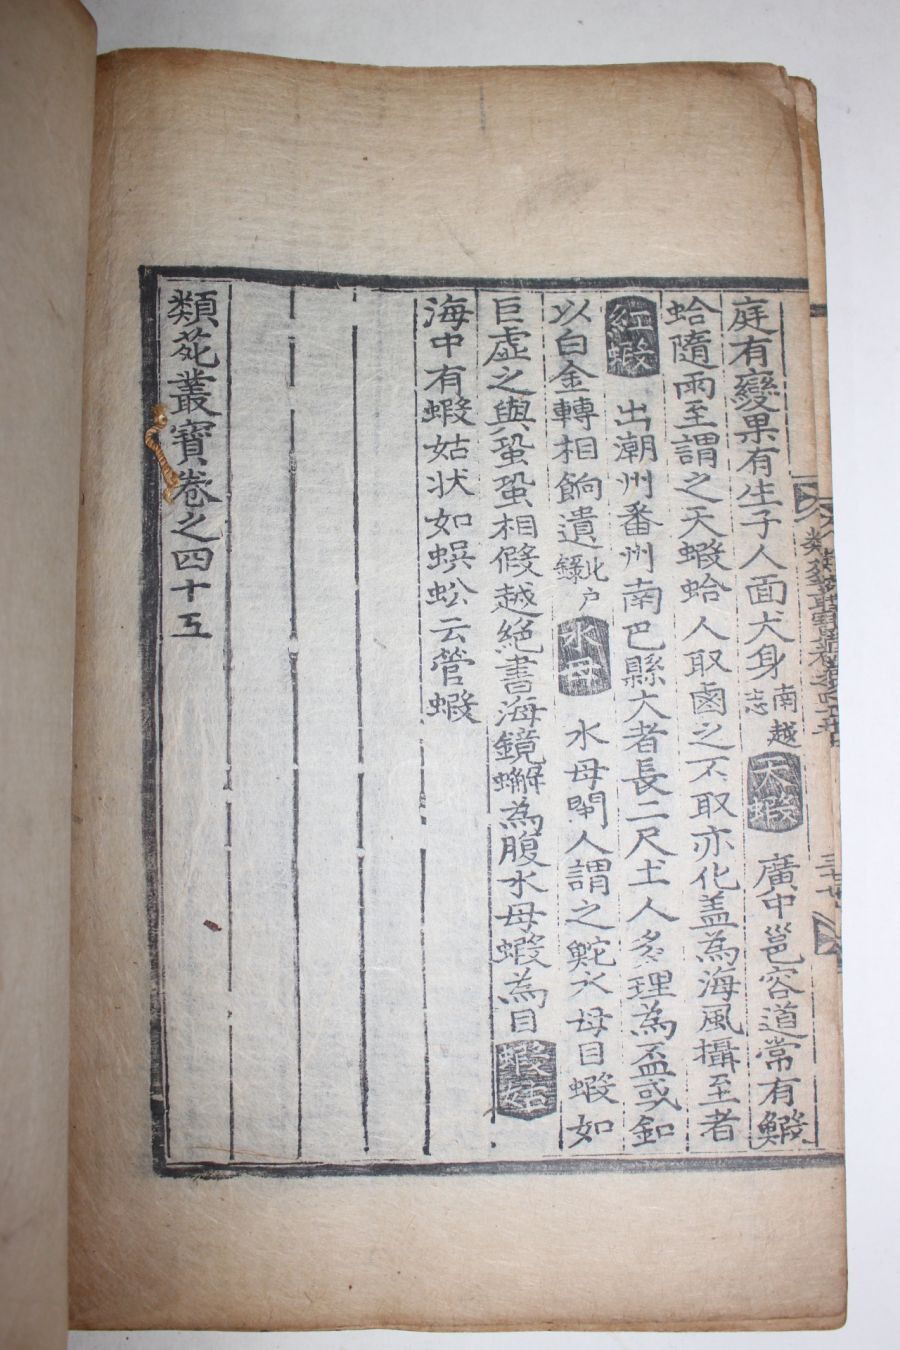 庭有變果有生子人面犬身南越志天蝦廣中邕容道常有鰕
蛤隨雨至謂之天蝦蛤人取鹵之不取亦化盖為海風攝至者
紅蝦出潮州番州南巴縣大者長二尺土人多理為盃或釦
以白金轉相餉遺北户錄水母水母閩人謂之䱇水母目蝦如
巨虛之與蛩蛩相假越絕書海鏡蠏為腹水母蝦為目蝦姑
海中有蝦姑状如蜈蚣云管蝦
類苑叢寶卷之四十五